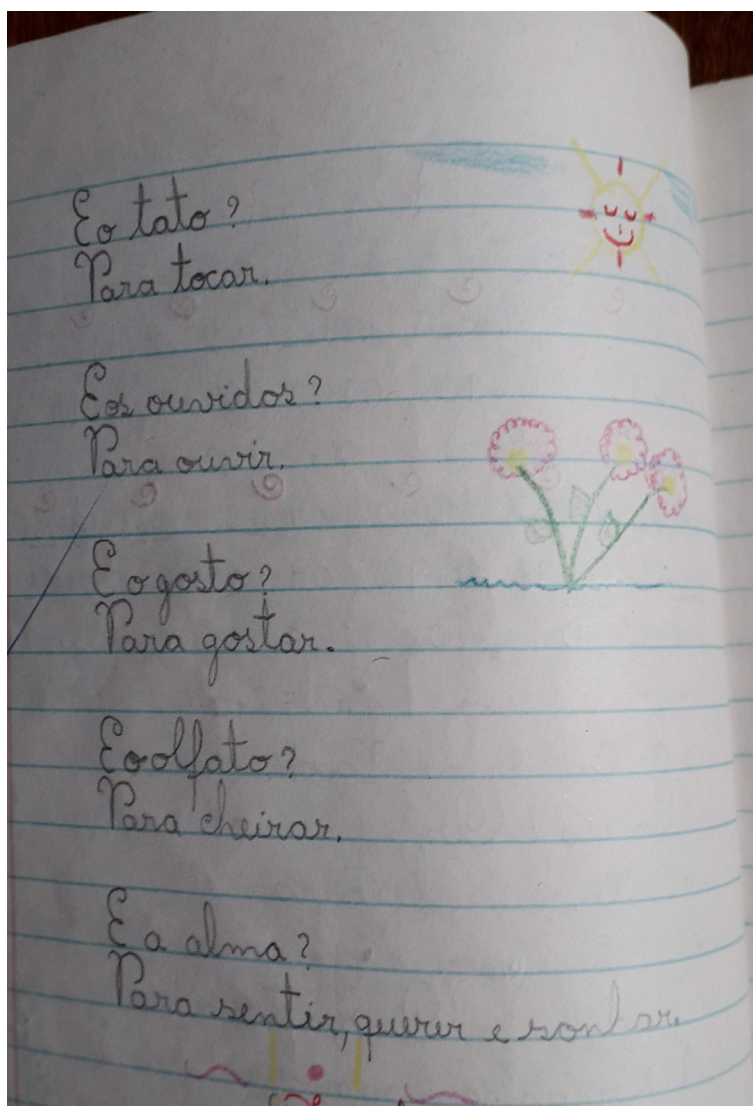 E o tato?
Para tocar.
E os ouvidos?
Para ouvir.
E o gosto?
Para gostar.
E o olfato?
Para cheirar.
E a alma?
Para sentir, querer e sonhar.